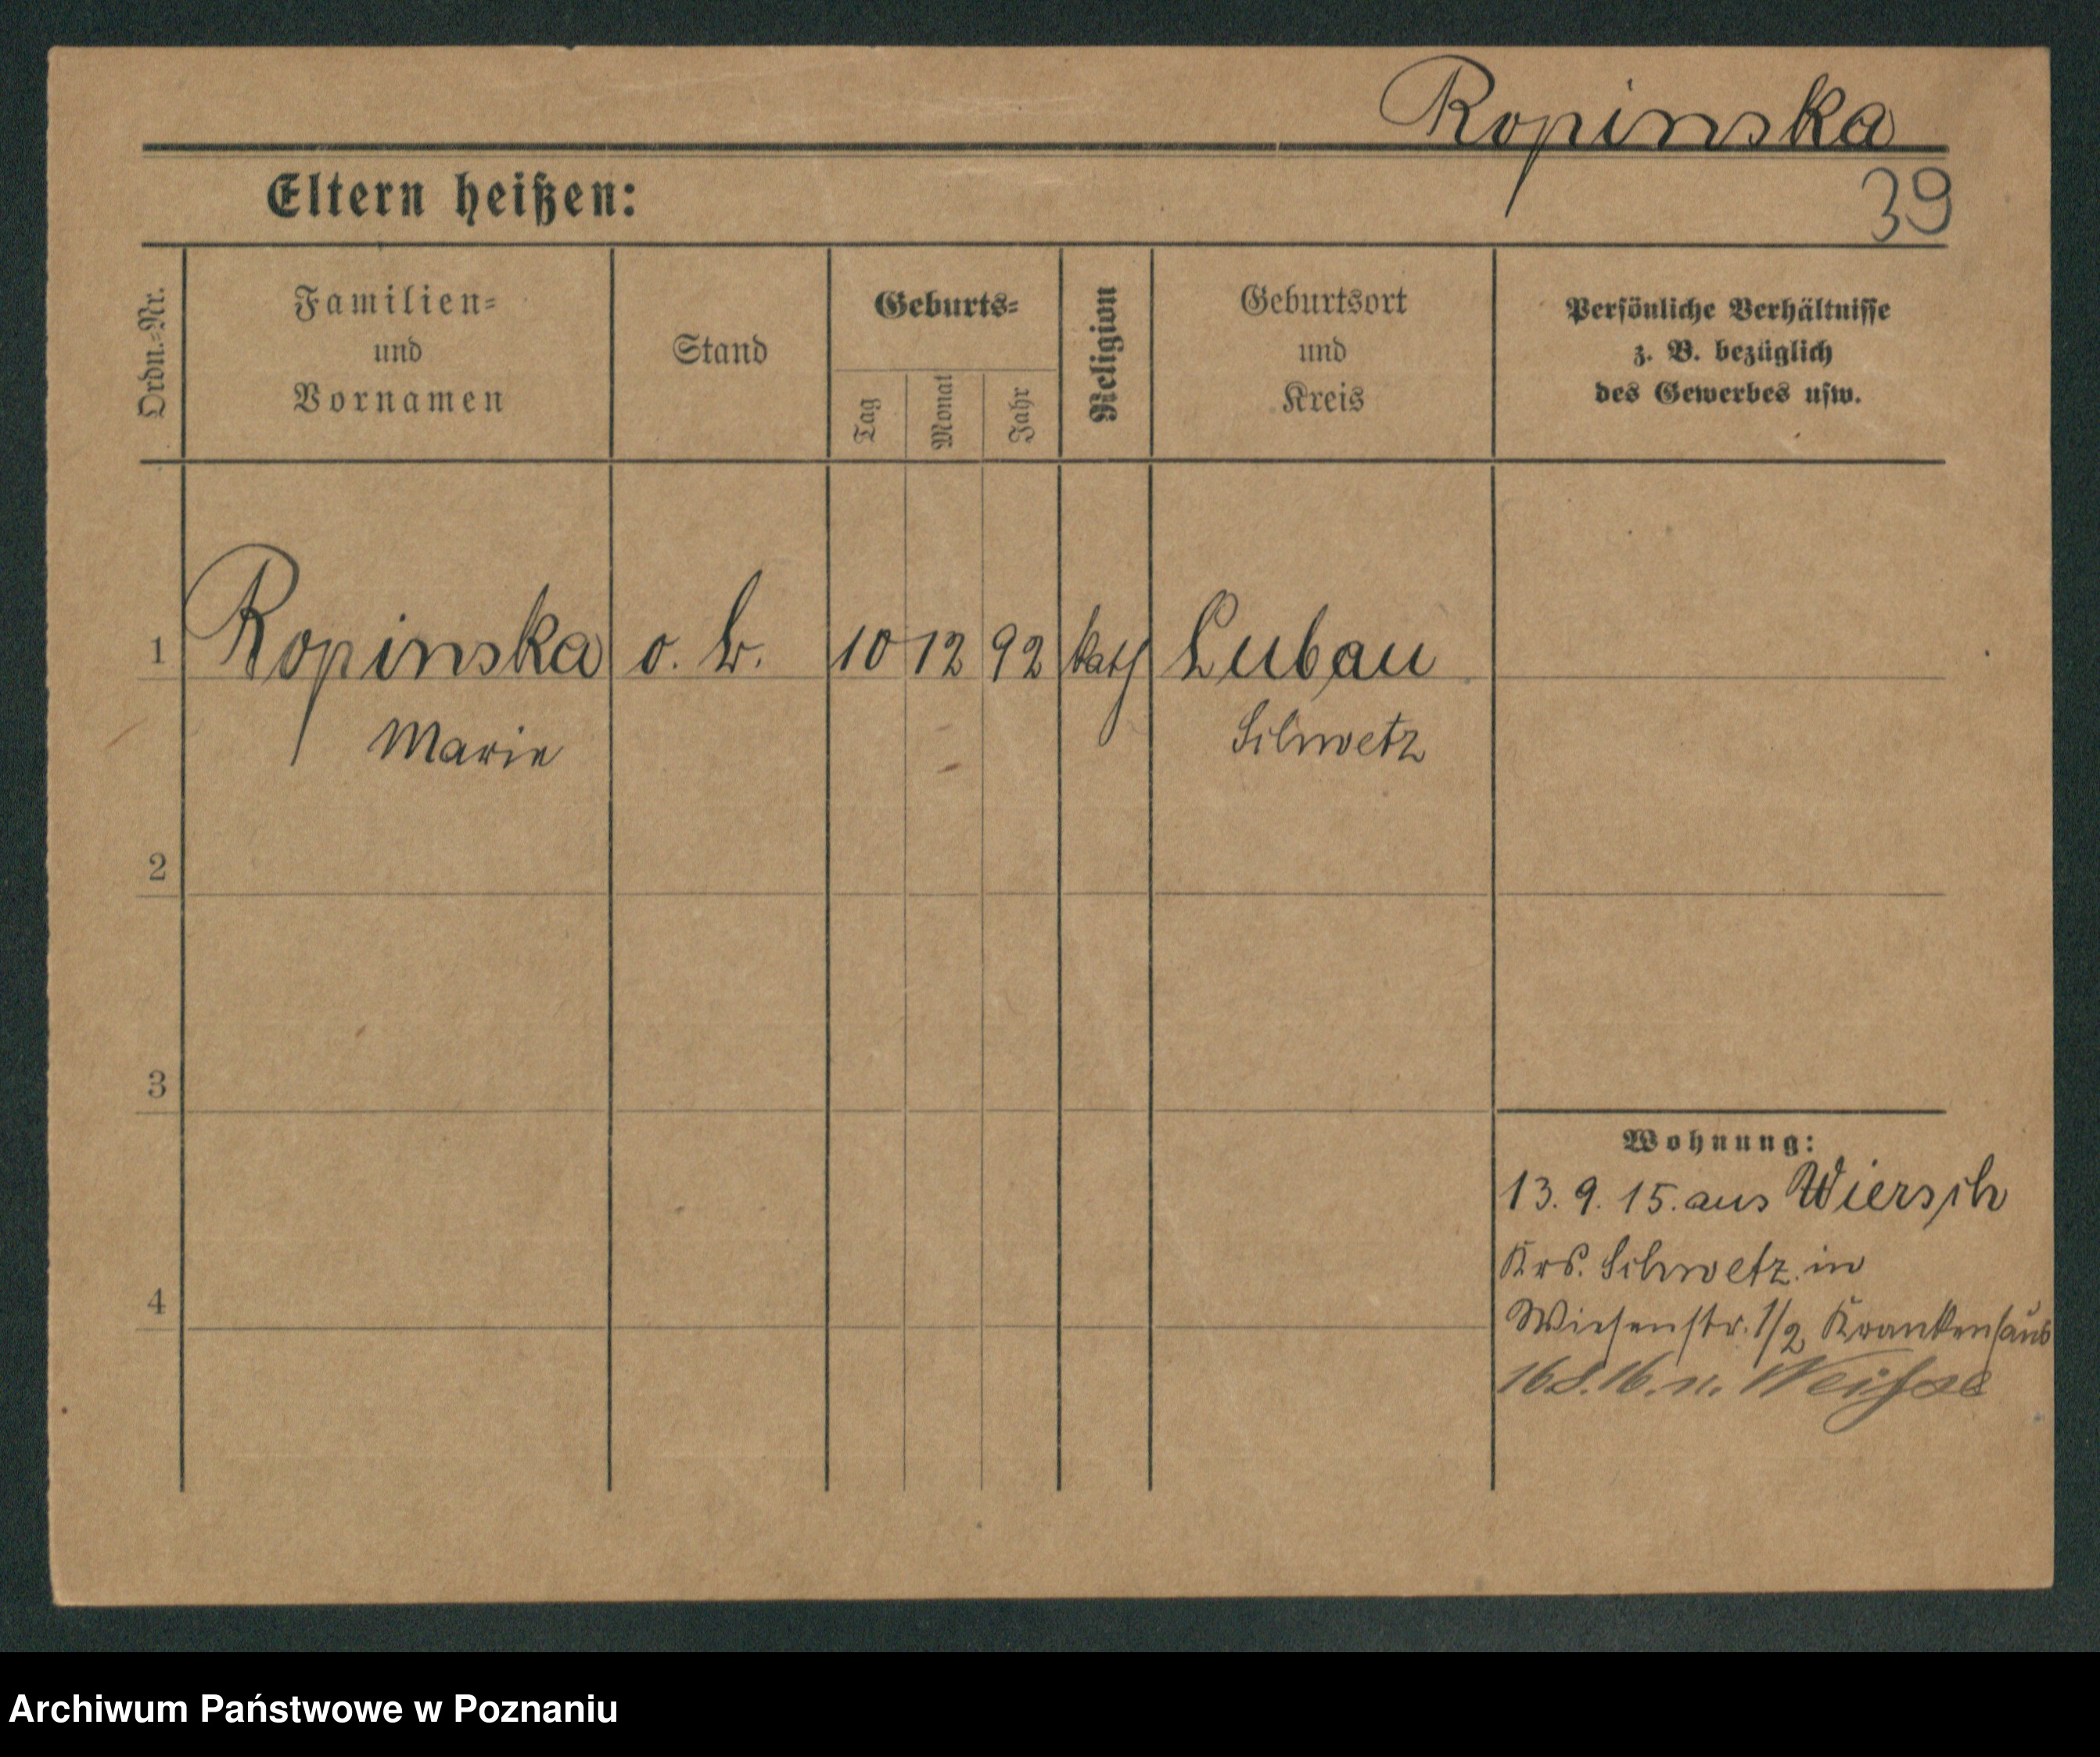 Ropinska
Eltern heißen:
39
Ordn.=Nr.
Familien=
und
Vornamen
Stand
Geburts=
Tag
Monat
Jahr
Religion
Geburtsort
und
Kreis
Persönliche Verhältnisse
z. B. bezüglich
des Gewerbes usw.
1
Ropinska
o. B.
10
12
92
kath
Lubau
Marie
Schwetz
2
3
Wohnung:
13. 9. 15. aus Wiersch
Krs. Schwetz in
4
Wiesenstr. 1/2 Krankenhaus
16.8.16. n.
Archiwum Państwowe w Poznaniu